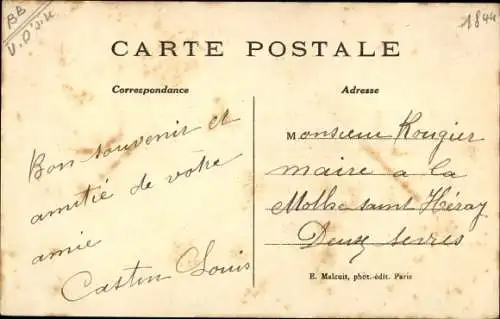 BB
V. D'S.U
1844
CARTE POSTALE
Correspondance
Adresse
Bon souvenir et
amitié de votre
amie
Castin Louis
Monsieur Rougier
maire a la
Mothe saint Héray
Deux sevres
E. Malcuit, phot.-édit. Paris